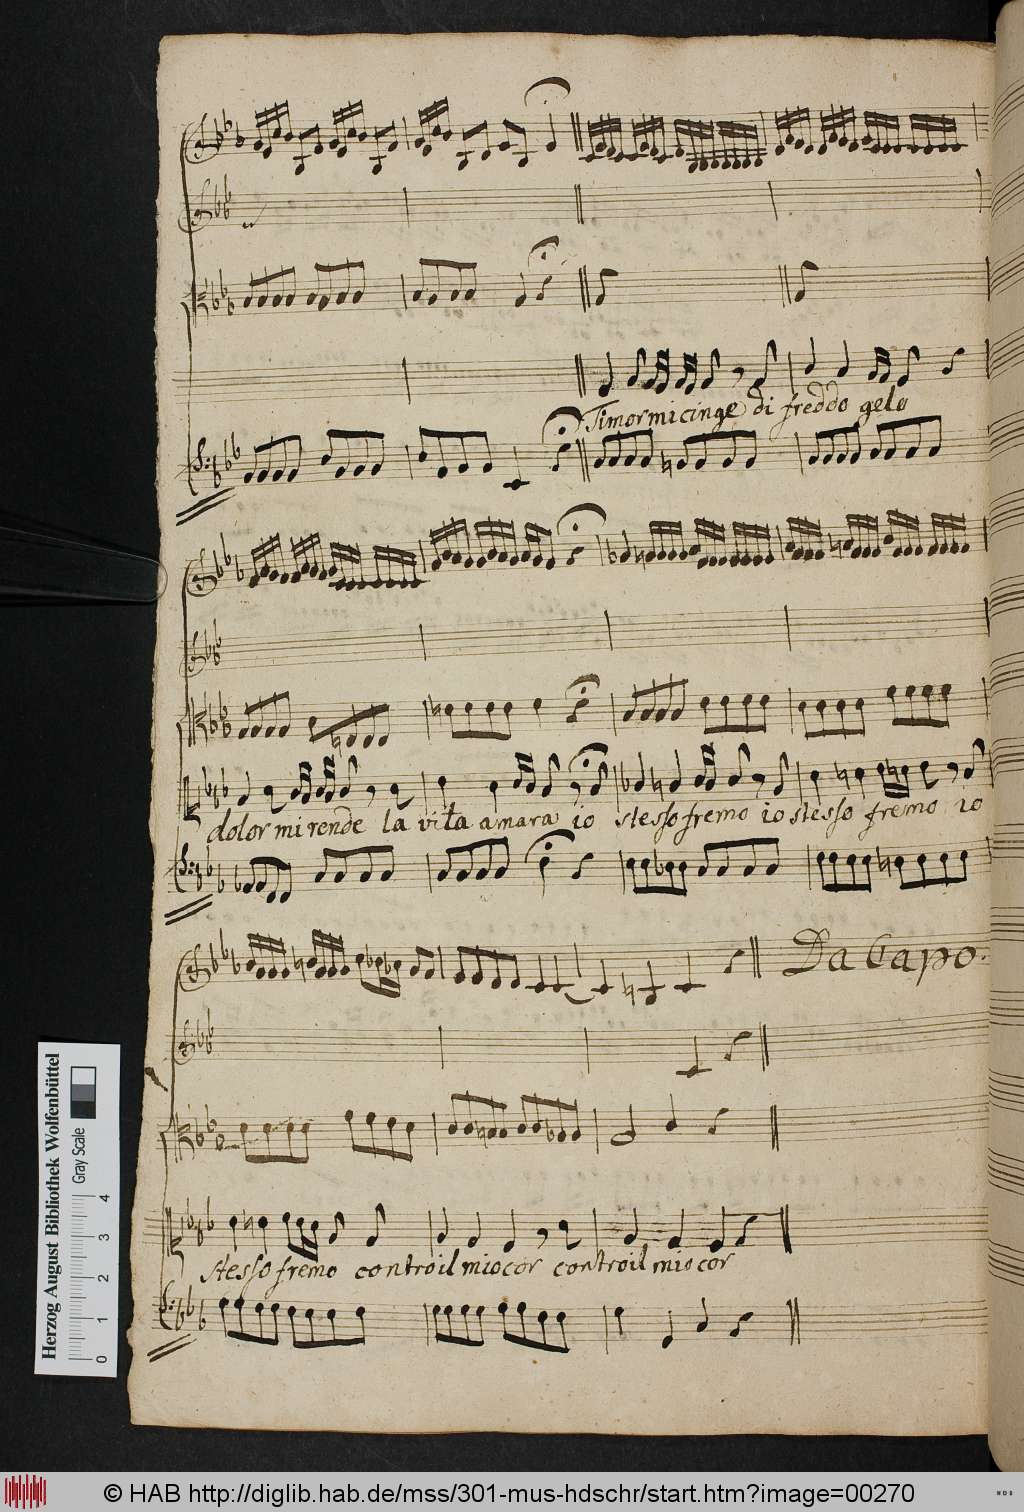 Timor mi cinge di freddo gelo
dolor mi rende la vita amara io stesso fremo io stesso fremo io
Da Capo.
stesso fremo contro il mio cor contro il mio cor
Herzog August Bibliothek Wolfenbüttel
Gray Scale
0 1 2 3 4
© HAB http://diglib.hab.de/mss/301-mus-hdschr/start.htm?image=00270